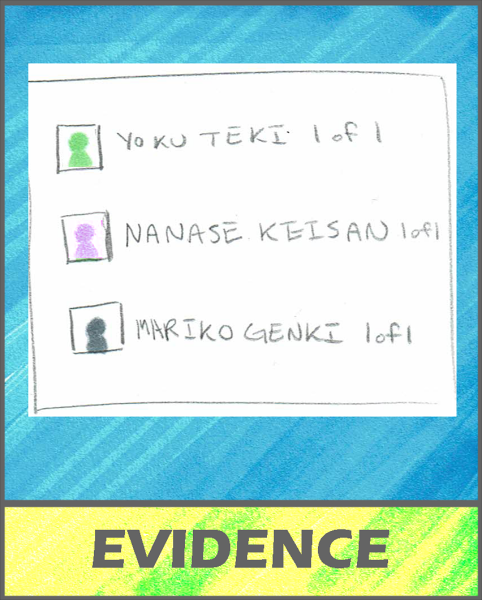 YOKU TEKI 1 of 1
NANASE KEISAN 1of1
MARIKO GENKI 1of1
EVIDENCE